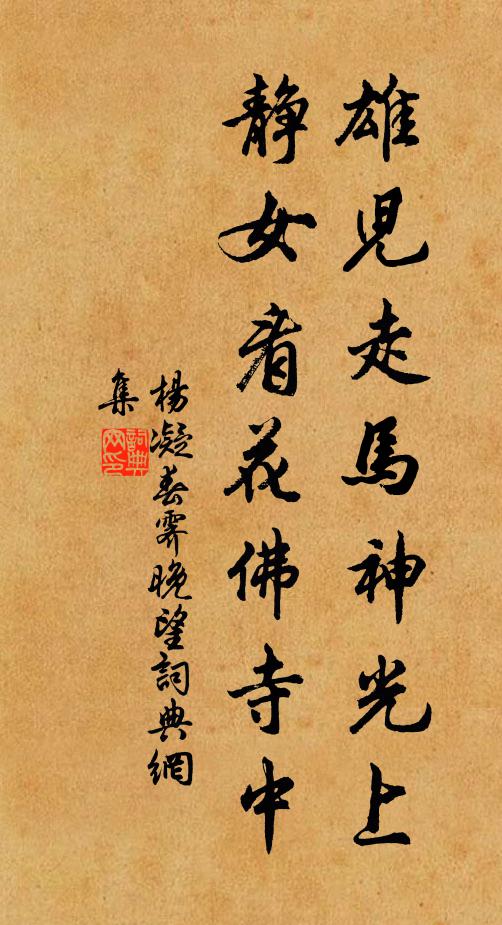 雄児走馬神光上
静女看花佛寺中
楊凝春霽晚望詞典網
集
詞典
网印